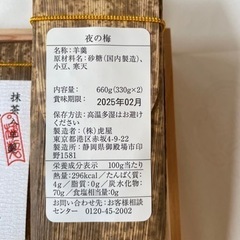 夜の梅
名称：羊羹
原材料名：砂糖（国内製造）、
小豆、寒天
内容量：660g(330g×2)
賞味期限：2025年02月
保存方法：高温多湿はお避け
ください
製造者：（株）虎屋
東京都港区赤坂4-9-22
製造所：静岡県御殿場市印
野1581
栄養成分表示　100g当たり
熱量：296kcal／たんぱく質：
4g／脂質：0g／炭水化物：
70g／食塩相当量：0g
お問い合わせ先：お客様相談
センター　0120-45-2002
抹茶